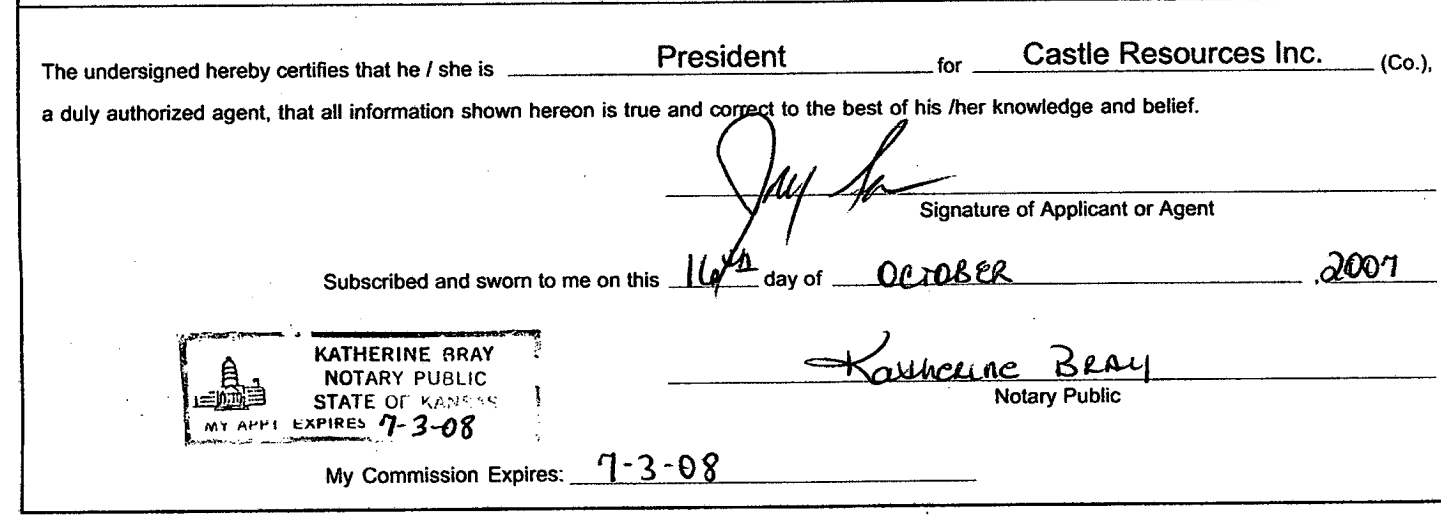 The undersigned hereby certifies that he / she is President for Castle Resources Inc. (Co.),
a duly authorized agent, that all information shown hereon is true and correct to the best of his /her knowledge and belief.
Jay
Signature of Applicant or Agent
Subscribed and sworn to me on this 16th day of OCTOBER ,2007
KATHERINE BRAY
NOTARY PUBLIC
STATE OF KANSAS
MY APPT EXPIRES 7-3-08
Katherine BRAY
Notary Public
My Commission Expires: 7-3-08